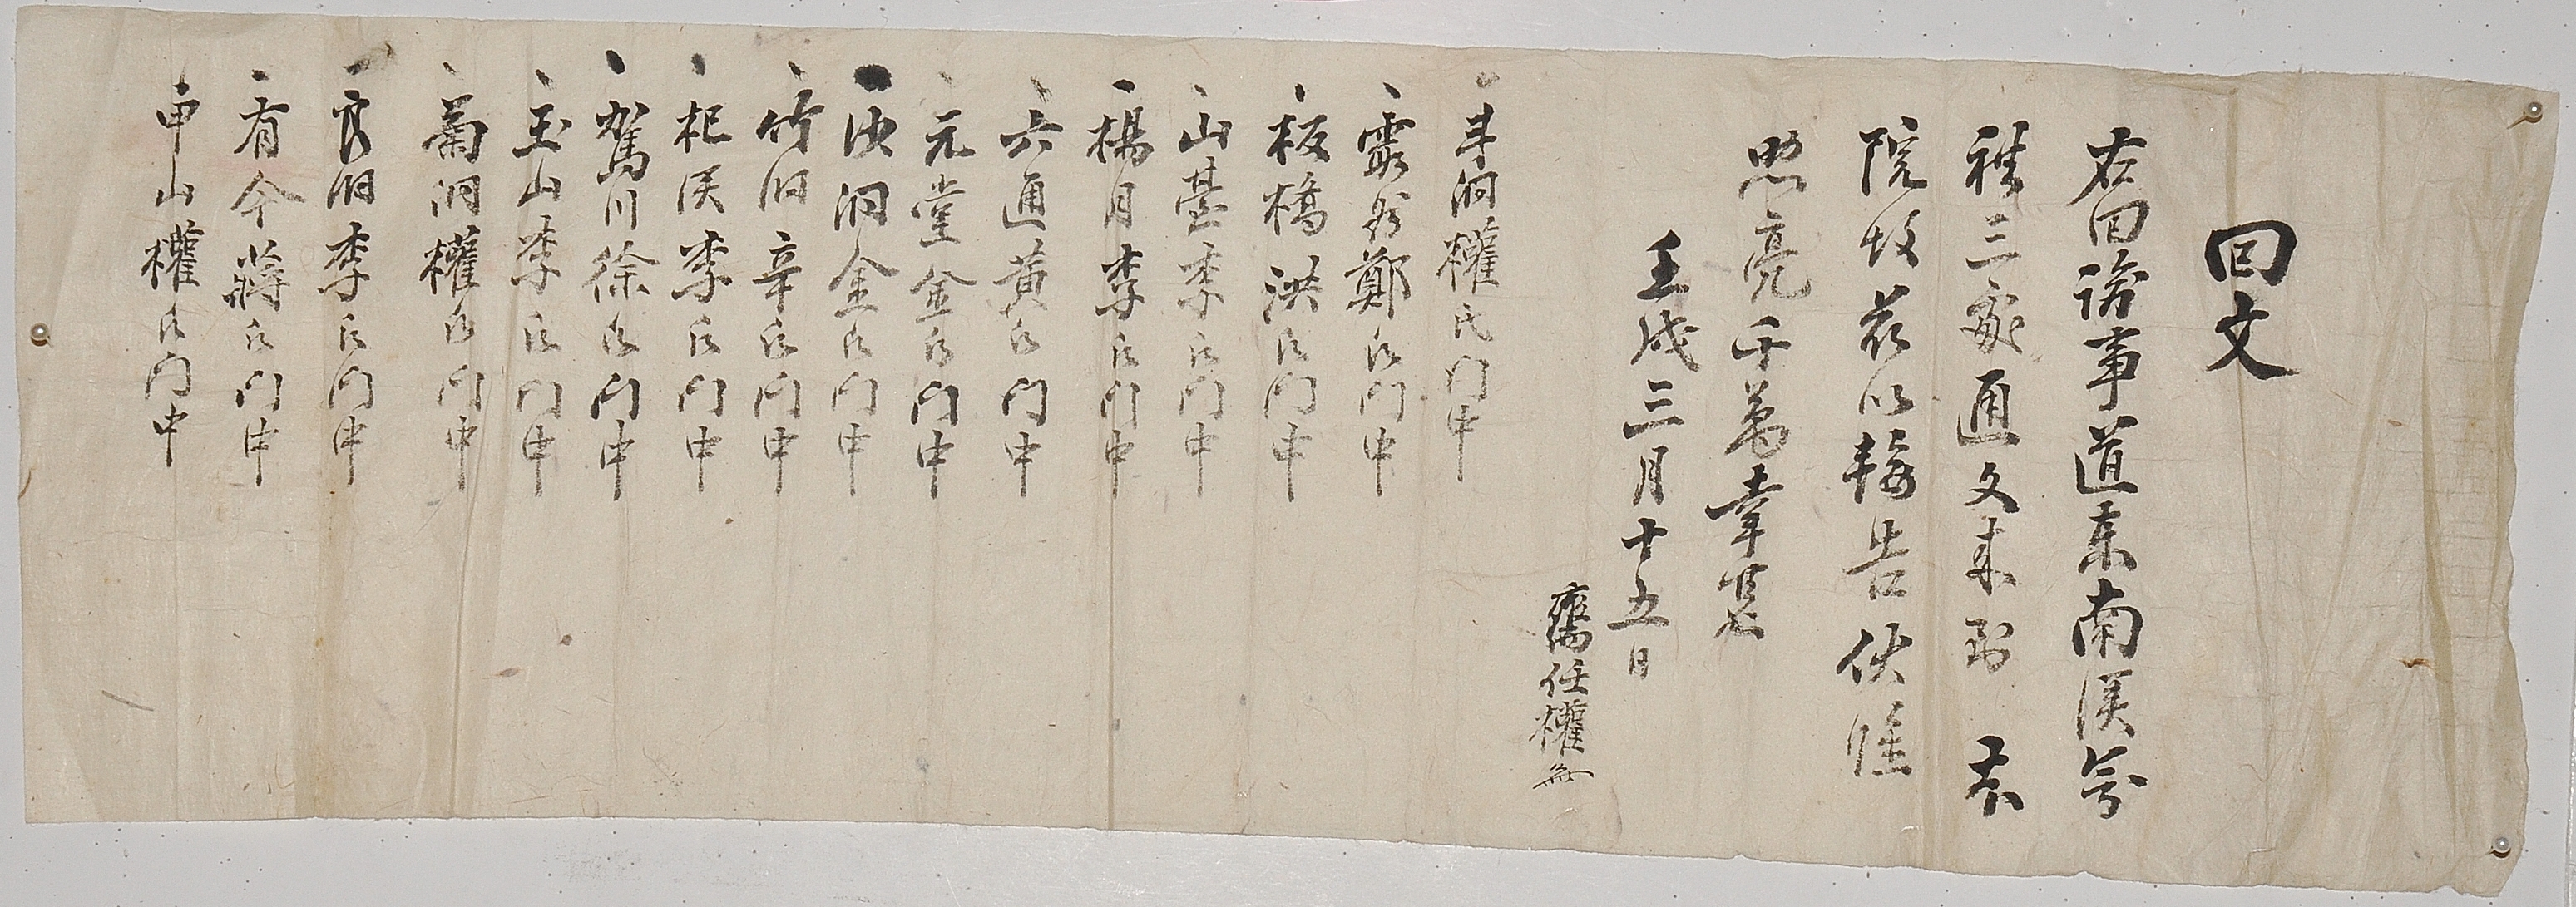 回文
右回諭事道東南溪等
祠三處通文來到 本
院故玆以轉告伏惟
照亮千萬幸甚
壬戌三月十五日
齋任權
斗洞權氏门中
鄭氏门中
板橋洪氏门中
山臺李氏门中
楊月李氏门中
六通黃氏门中
元堂金氏门中
沙洞金氏门中
竹洞辛氏门中
杞溪李氏门中
駕川徐氏门中
玉山李氏门中
菊洞權氏门中
良洞李氏门中
有今蔣氏门中
甲山權氏门中